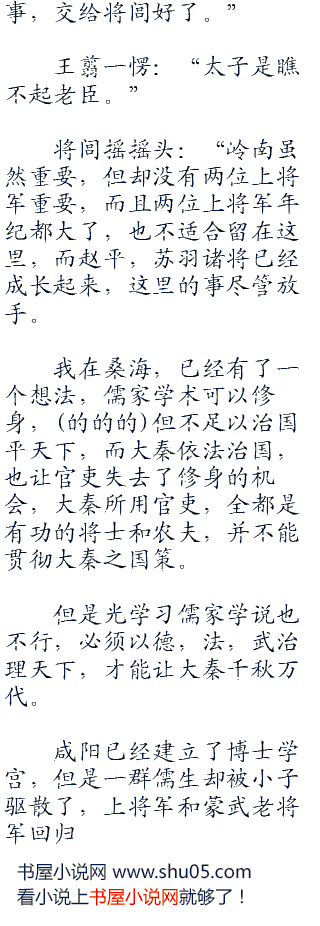 事，交给将闾好了。”
王翦一愣：“太子是瞧
不起老臣。”
将闾摇摇头：“岭南虽
然重要，但却没有两位上将
军重要，而且两位上将军年
纪都大了，也不适合留在这
里，而赵平，苏羽诸将已经
成长起来，这里的事尽管放
手。
我在桑海，已经有了一
个想法，儒家学术可以修
身，(的的的)但不足以治国
平天下，而大秦依法治国，
也让官吏失去了修身的机
会，大秦所用官吏，全都是
有功的将士和农夫，并不能
贯彻大秦之国策。
但是光学习儒家学说也
不行，必须以德，法，武治
理天下，才能让大秦千秋万
代。
咸阳已经建立了博士学
宫，但是一群儒生却被小子
驱散了，上将军和蒙武老将
军回归
书屋小说网 www.shu05.com
看小说上书屋小说网就够了！